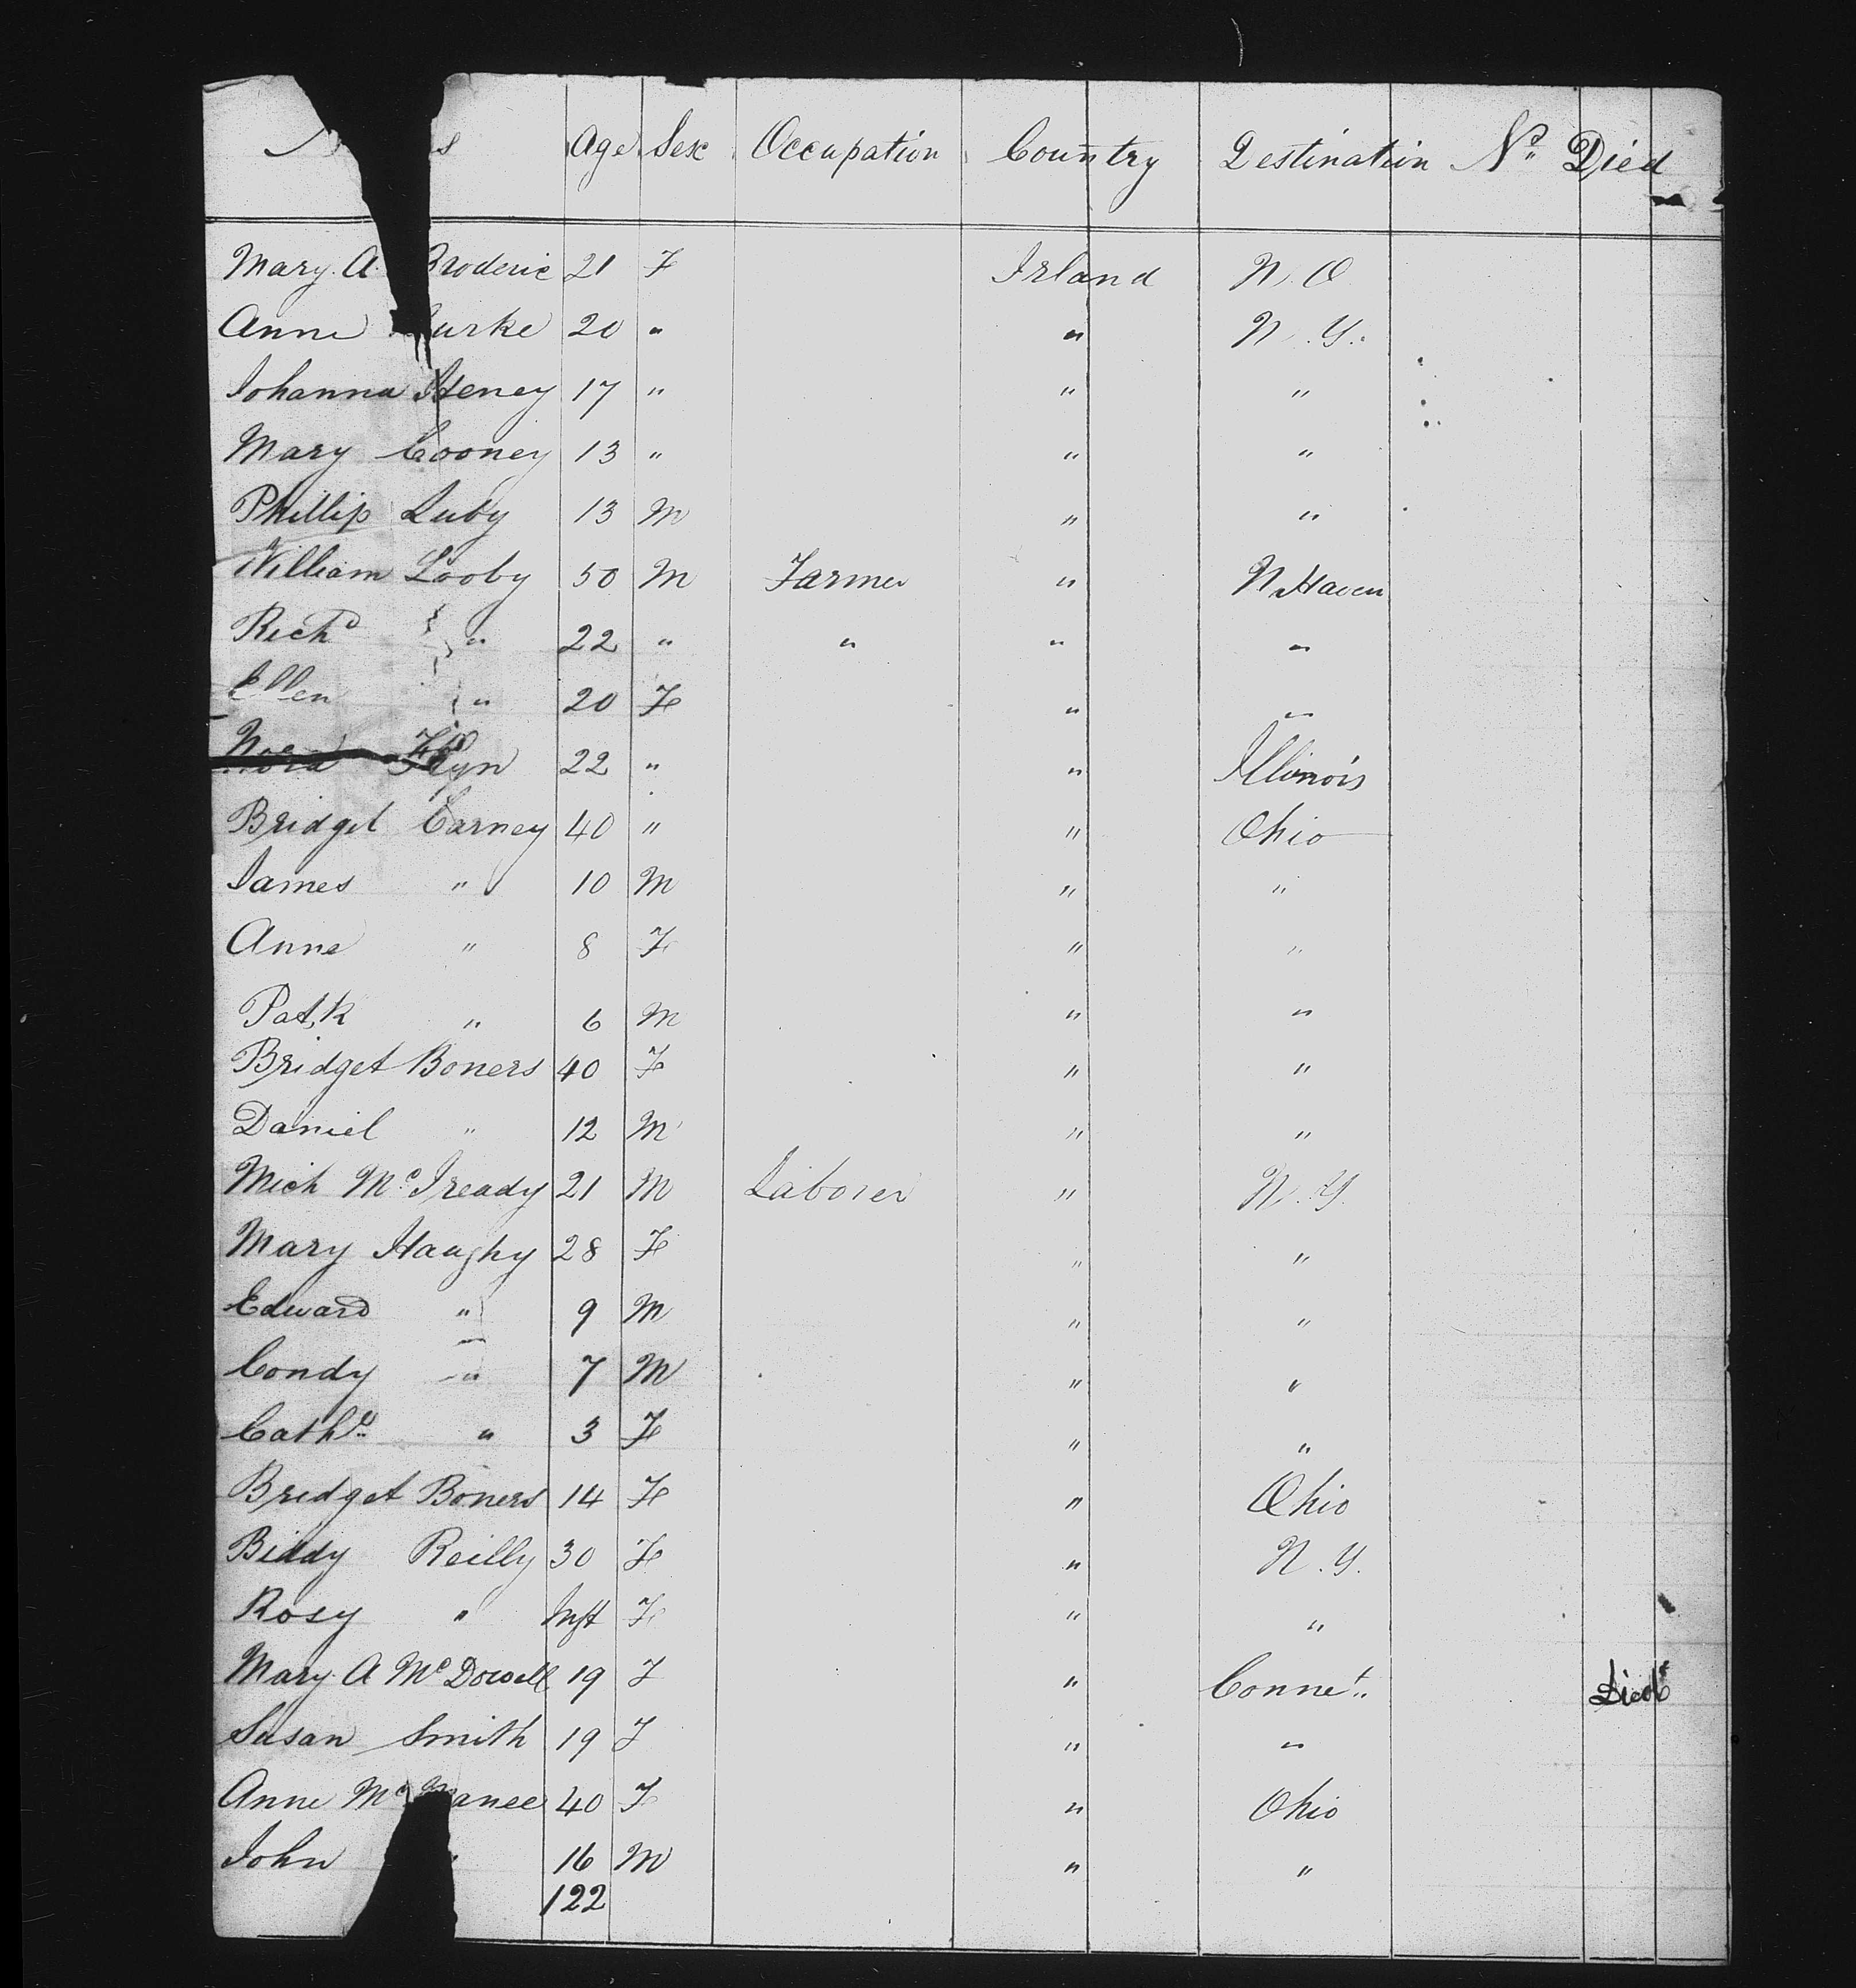 Age Sex Occupation Country Destination No. Died
Mary. A. Broderic 21 F Irland N. O
Anne Burke 20 " " N. Y.
Johanna Heney 17 " " "
Mary Cooney 13 " " "
Phillip Luby 13 M " "
William Looby 50 M Farmer " N. Haven
Richd " 22 " " " "
Ellen " 20 F " "
Nora Flyn 22 " " Illinois
Bridget Carney 40 " " Ohio
James " 10 M " "
Anne " 8 F " "
Pat,k " 6 M " "
Bridget Boners 40 F " "
Daniel " 12 M " "
Mich Mc 21 M Laborer " N. Y.
Mary Haughy 28 F " "
Edward " 9 M " "
Condy " 7 M " "
Cathe " 3 F " "
Bridget Boners 14 F " Ohio
Biddy Reilly 30 F " N. Y.
Rosy " Inft F " "
Mary. A McDowell 19 F " Connet. Died
Susan Smith 19 F " "
Anne Mc 40 F " Ohio
John 16 M " "
122